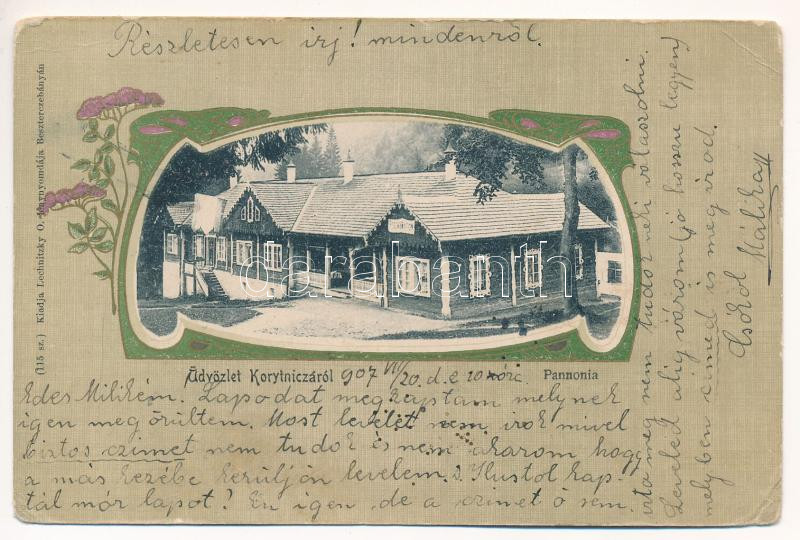 Részletesen irj! mindenről.
(115 sz.) Kiadja Lechnitzky O. könyvnyomdája Beszterczebányán
darabanth
Üdvözlet Korytniczáról 907 VII/20. d.e. 10 óra. Pannonia
Édes Milikém. Lapodat megkaptam melynek
igen megörültem. Most levelet nem irok mivel
biztos czimet nem tudok és nem akarom hogy
a más kezébe kerüljön levelem. S. Ilustol kap-
tál már lapot? Én igen, de a czimet ő sem
irta meg nem tudok neki válaszolni.
Leveled alig várom (jó hosszu legyen)
melyben czimed is meg irod.
Csókol Málika